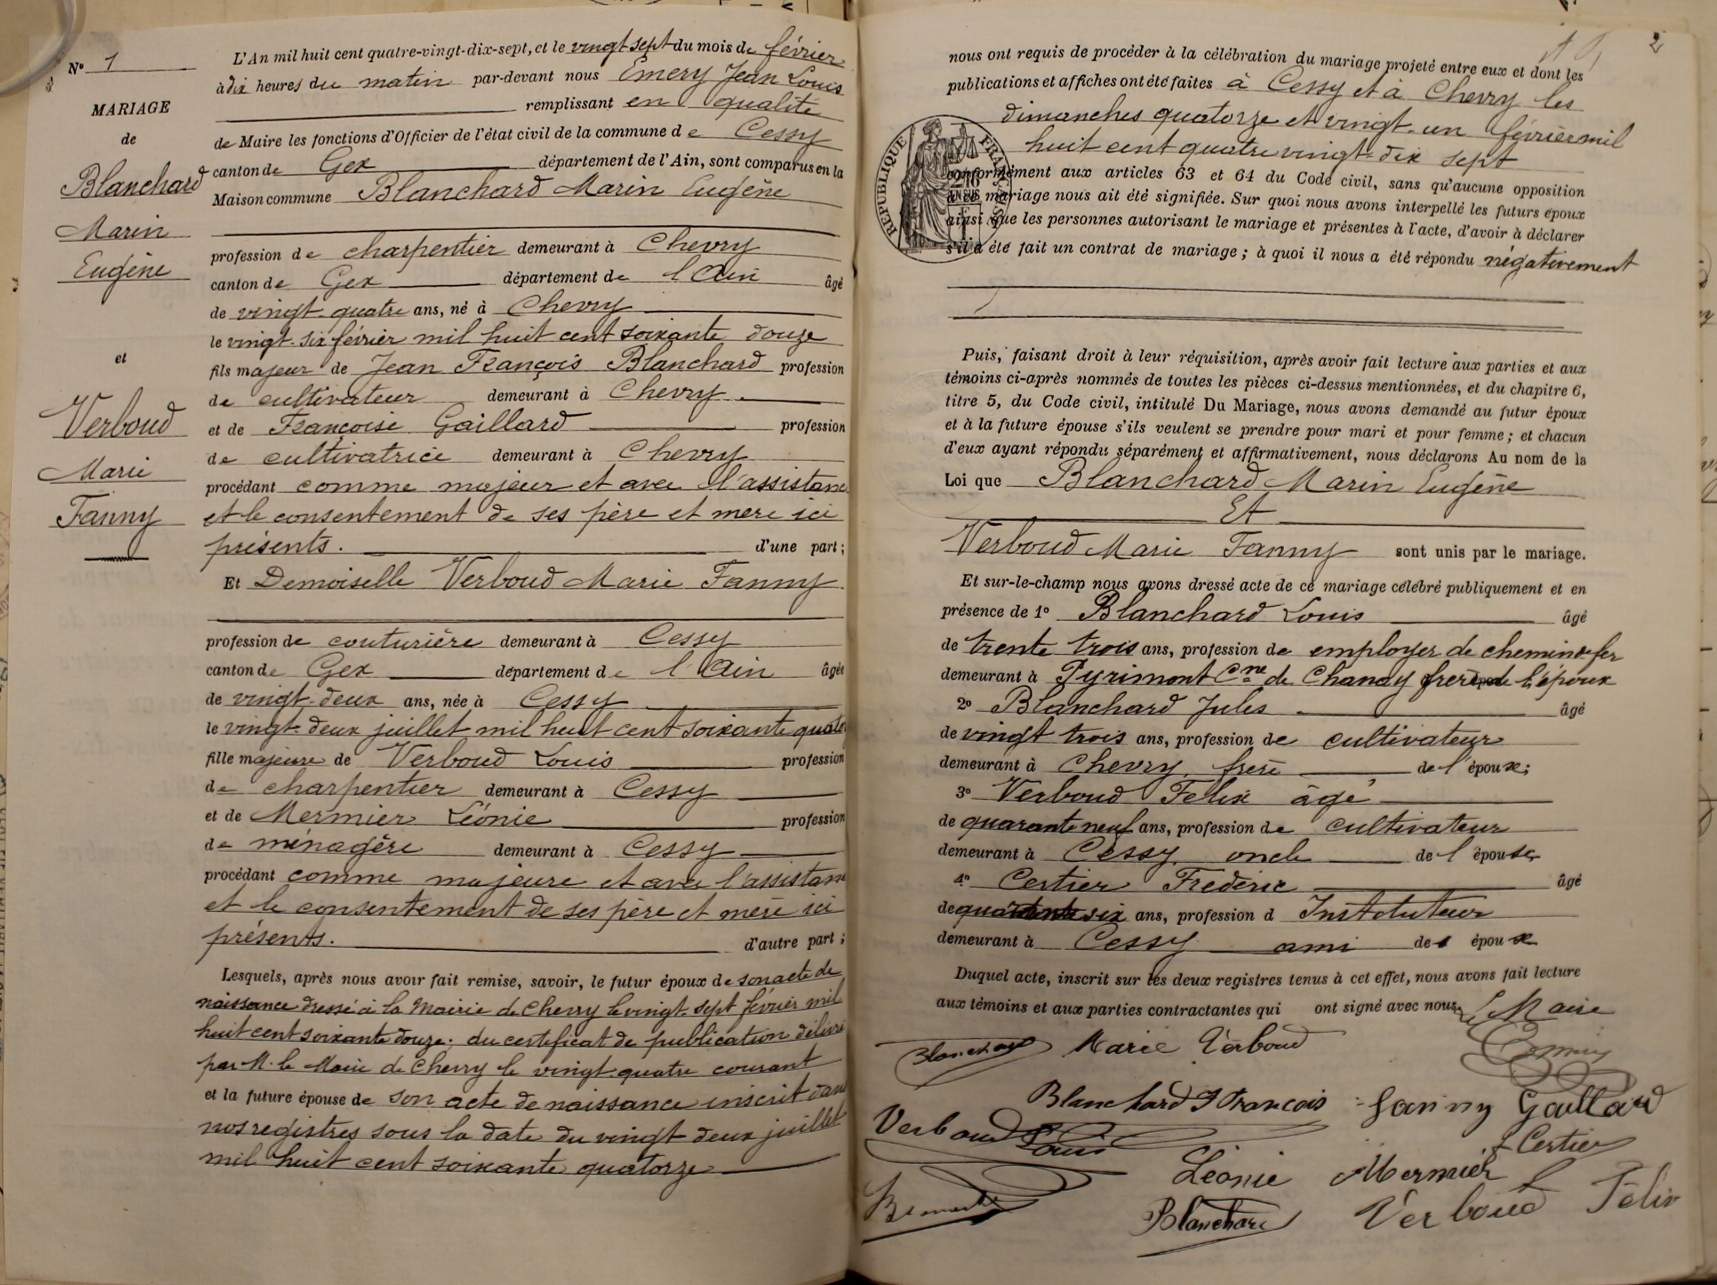 N° 1
MARIAGE
de
Blanchard
Marin
Eugène
et
Verboud
Marie
Fanny
L'An mil huit cent quatre-vingt-dix-sept, et le vingt sept du mois de février
à dix heures du matin par-devant nous Emery Jean Louis
remplissant en qualité
de Maire les fonctions d'Officier de l'état civil de la commune de Cessy
canton de Gex département de l'Ain, sont comparus en la
Maison commune Blanchard Marin Eugène
profession de charpentier demeurant à Chevry
canton de Gex département de l'Ain âgé
de vingt quatre ans, né à Chevry
le vingt-six février mil huit cent soixante douze
fils majeur de Jean François Blanchard profession
de cultivateur demeurant à Chevry
et de Françoise Gaillard profession
de cultivatrice demeurant à Chevry
procédant comme majeur et avec l'assistance
et le consentement de ses père et mère ici
présents. d'une part;
Et Demoiselle Verboud Marie Fanny
profession de couturière demeurant à Cessy
canton de Gex département de l'Ain âgée
de vingt-deux ans, née à Cessy
le vingt-deux juillet mil huit cent soixante quato
fille majeure de Verboud Louis profession
de charpentier demeurant à Cessy
et de Mermier Léonie profession
de ménagère demeurant à Cessy
procédant comme majeure et avec l'assistan
et le consentement de ses père et mère ici
présents. d'autre part;
Lesquels, après nous avoir fait remise, savoir, le futur époux de son acte de
naissance dressé à la Mairie de Chevry le vingt-sept février mil
huit cent soixante douze; du certificat de publication délivré
par M. le Maire de Chevry le vingt-quatre courant
et la future épouse de son acte de naissance inscrit dans
nos registres sous la date du vingt deux juillet
mil huit cent soixante quatorze
2
nous ont requis de procéder à la célébration du mariage projeté entre eux et dont les
publications et affiches ont été faites à Cessy et à Chevry les
dimanches quatorze et vingt-un février mil
huit cent quatre vingt-dix sept
conformément aux articles 63 et 64 du Code civil, sans qu'aucune opposition
au mariage nous ait été signifiée. Sur quoi nous avons interpellé les futurs époux
ainsi que les personnes autorisant le mariage et présentes à l'acte, d'avoir à déclarer
s'il a été fait un contrat de mariage; à quoi il nous a été répondu négativement
RÉPUBLIQUE FRANÇAISE
Puis, faisant droit à leur réquisition, après avoir fait lecture aux parties et aux
témoins ci-après nommés de toutes les pièces ci-dessus mentionnées, et du chapitre 6,
titre 5, du Code civil, intitulé Du Mariage, nous avons demandé au futur époux
et à la future épouse s'ils veulent se prendre pour mari et pour femme; et chacun
d'eux ayant répondu séparément et affirmativement, nous déclarons Au nom de la
Loi que Blanchard Marin Eugène
Et
Verboud Marie Fanny sont unis par le mariage.
Et sur-le-champ nous avons dressé acte de ce mariage célébré publiquement et en
présence de 1° Blanchard Louis âgé
de trente trois ans, profession de employer de chemin de fer
demeurant à Pyrimont Cne de Chanay frère de l'époux
2° Blanchard Jules âgé
de vingt trois ans, profession de cultivateur
demeurant à Chevry frère de l'époux;
3° Verboud Félix âgé
de quarante neuf ans, profession de cultivateur
demeurant à Cessy oncle de l'épouse
4° Certier Frédéric âgé
de quarante six ans, profession d Instituteur
demeurant à Cessy ami de époux
Duquel acte, inscrit sur les deux registres tenus à cet effet, nous avons fait lecture
aux témoins et aux parties contractantes qui ont signé avec nous, Maire
Blanchard Marie Verboud Emery
Blanchard J François Fanny Gaillard
Verboud Louis F Certier
Léonie Mermier
Blanchard Verboud Félix